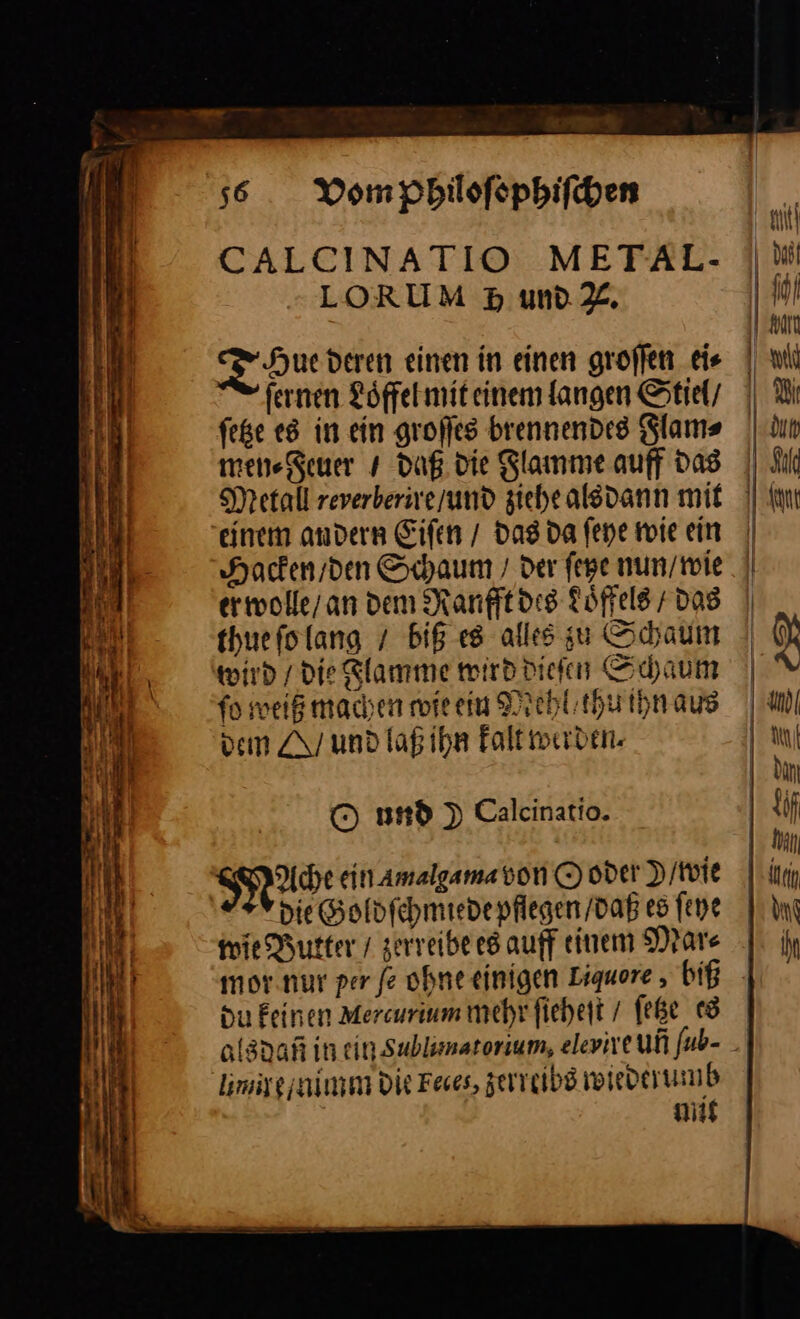 56 Vom philoſophiſchen
CALCINATIO METAL-
LORUM ♄ und ♃.
THue deren einen in einen groſſen ei⸗
ſernen Loͤffel mit einem langen Stiel/
ſetze es in ein groſſes brennendes Flam⸗
men⸗Feuer / daß die Flamme auff das
Metall reverberire/und ziehe alsdann mit
einem andern Eiſen / das da ſeye wie ein
Hacken/den Schaum / der ſeye nun/wie
er wolle/an dem Ranfft des Loͤffels / das
thue ſo lang / biß es alles zu Schaum
wird / die Flamme wird dieſen Schaum
ſo weiß machen wie ein Mehl/thu ihn aus
dem 🜂/ und laß ihn kalt werden.
☉ und ☽ Calcinatio.
MAche ein Amalgama von ☉ oder ☽/wie
die Goldſchmiede pflegen/daß es ſeye
wie Butter / zerreibe es auff einem Mar⸗
mor nur per ſe ohne einigen Liquore, biß
du keinen Mercurium mehr ſieheſt / ſetze es
alsdañ in ein Sublimatorium, elevire uñ ſub-
limire/nimm die Feces, zerreibs wiederumb
mit